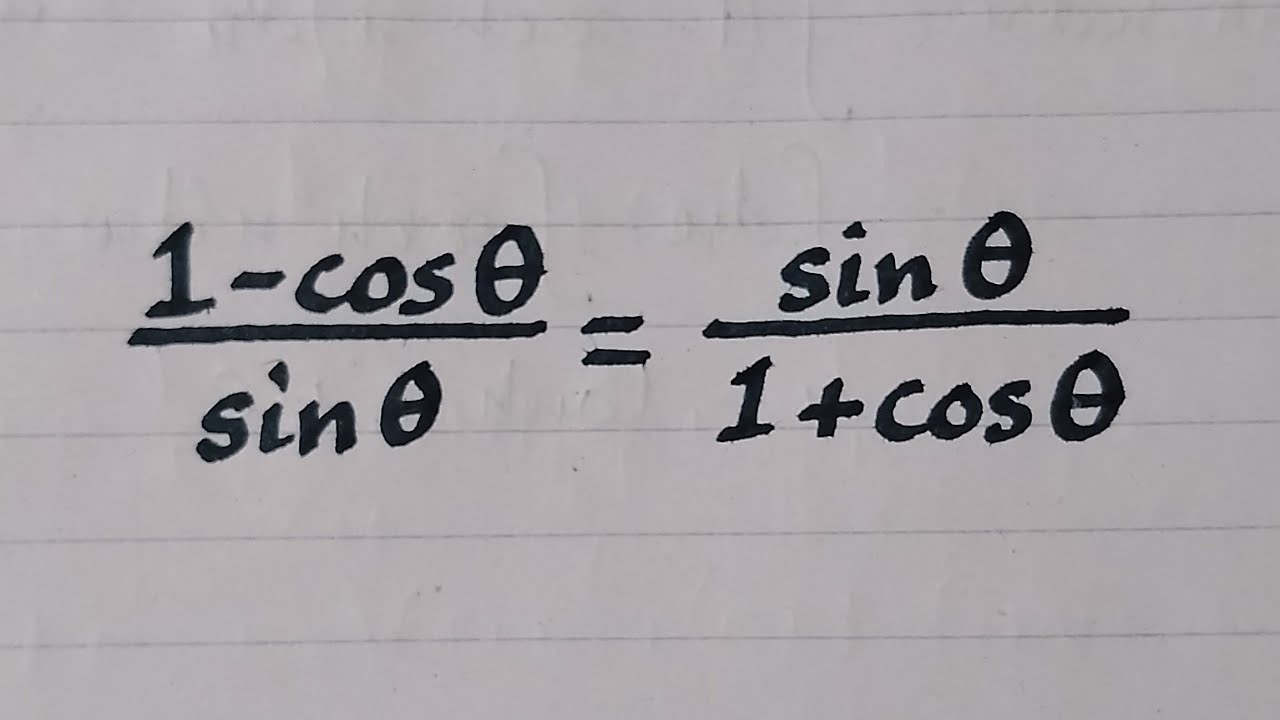 1-cosθ = sinθ
sinθ 1+cosθ